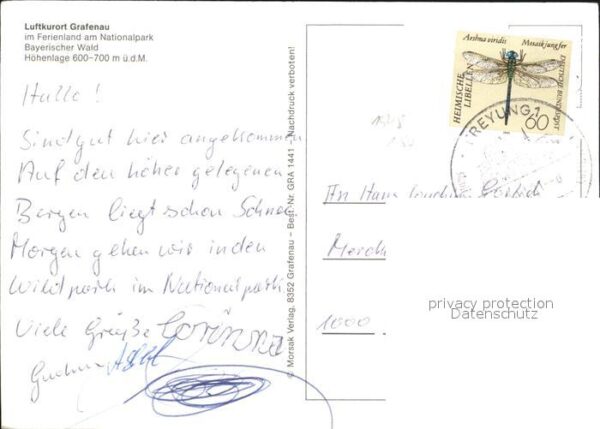 Luftkurort Grafenau
im Ferienland am Nationalpark
Bayerischer Wald
Höhenlage 600–700 m ü.d.M.
Hallo!
Sind gut hier angekommen.
Auf den höher gelegenen
Bergen liegt schon Schnee.
Morgen gehen wir in den
Wildpark im Nationalpark
Viele Grüße Corinna
Gudrun
© Morsak Verlag, 8352 Grafenau – Best.-Nr. GRA 1441 – Nachdruck verboten!
Aeshna viridis Mosaikjungfer
HEIMISCHE
LIBELLEN
DEUTSCHE BUNDESPOST
60
REYUNG 1
An
1000
privacy protection
Datenschutz